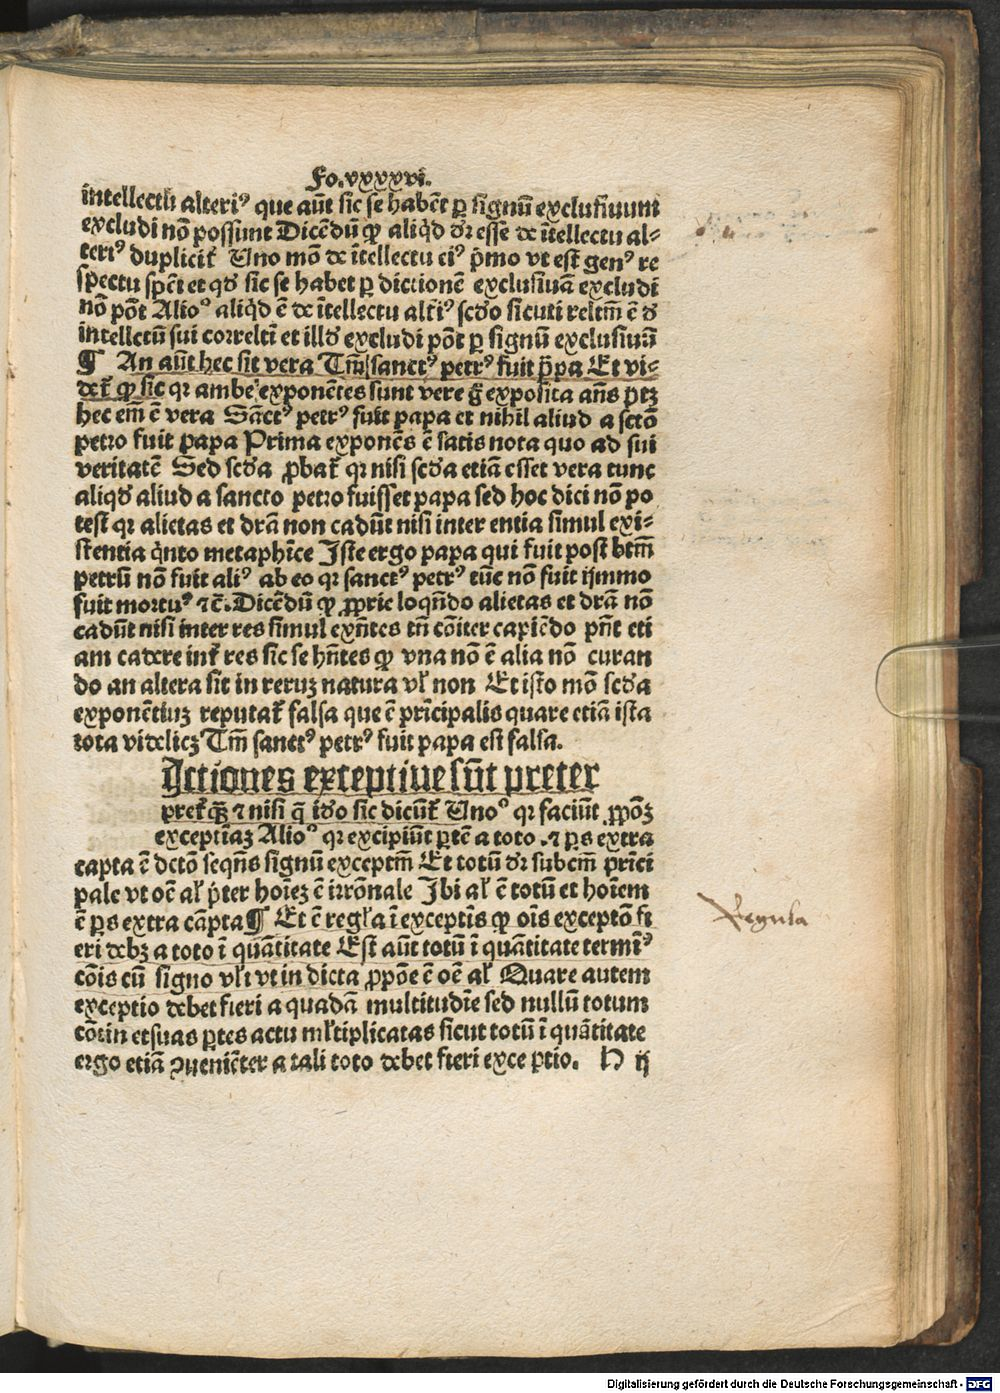 Fo.vxxxxvi.
intellectū alteriꝰ que aūt sic se habēt ꝑ signū exclusiuum
excludi nō possunt Dicēdū ꝙ aliq̇d dr̄ esse de ītellectu al⸗
teriꝰ dupliciť Uno mō de ītellectu eiꝰ p̄mo vt est genꝰ re
spectu spēi et qď sic se habet ꝑ dictionē exclusiuā excludi
nō pōt Alioꝰ aliq̇d ē de ītellectu alťiꝰ scďo sicuti reltm̄ ē ď
intellectū sui correlti et illď excludi pōt ꝑ signū exclusiuū
¶ An aūt hec sit vera Tm̄ sanctꝰ petrꝰ fuit p̄pa Et vi⸗
deť ꝙ sic qꝛ ambe exponētes sunt vere g̊ exposita an̄s p̄tꝫ
hec em̄ ē vera Sāctꝰ petrꝰ fuit papa et nihil aliud a sctō
petro fuit papa Prima exponēs ē satis nota quo ad sui
veritatē Sed scďa ꝓbať qꝛ nisi scďa etiā esset vera tunc
aliqď aliud a sancto petro fuisset papa sed hoc dici nō po
test qꝛ alietas et dr̄am non cadūt nisi inter entia simul exi⸗
stentia q̇nto metaphīce Iste ergo papa qui fuit post btm̄
petrū nō fuit aliꝰ ab eo qꝛ sanctꝰ petrꝰ tūc nō fuit ijmmo
fuit mortuꝰ ⁊c̄. Dicēdū ꝙ ꝓprie loqn̄do alietas et dr̄am nō
cadūt nisi inter res simul exn̄tes tn̄ cōiter capiēdo pn̄t eti
am cadere inť res sic se hn̄tes ꝙ vna nō ē alia nō curan
do an altera sit in reruꝫ natura vľ non Et isto mō scďa
exponētiuꝫ reputať falsa que ē prīcipalis quare etiā ista
tota videlicꝫ Tm̄ sanctꝰ petrꝰ fuit papa est falsa.
Ictiones exceptiue sūt preter
preťqꝫ ⁊ nisi q̄ iďo sic dicūť Unoꝰ qꝛ faciūt ꝓpōꝫ
exceptīaꝫ Alioꝰ qꝛ excipiūt ꝑtē a toto .⁊ ꝑs extra
capta ē dctō seqn̄s signū exceptm̄ Et totū dr̄ subcm̄ prīci
pale vt oē aľ p̄ter hoīeꝫ ē irrōnale Ibi aľ ē totū et hoīem
ē ꝑs extra cāpta ¶ Et ē regľa ī exceptīs ꝙ oīs exceptō fi
eri debꝫ a toto ī quātitate Est aūt totū ī quātitate termīꝰ
cōis cū signo vľi vt in dicta ꝓpōe ē oē aľ Quare autem
exceptio debet fieri a quadā multitudīe sed nullū totum
cōtin et suas ꝑtes actu mľtiplicatas sicut totū ī quātitate
ergo etiā ꝯueniēter a tali toto debet fieri exce ptio. H ij
Regula
Digitalisierung gefördert durch die Deutsche Forschungsgemeinschaft - DFG